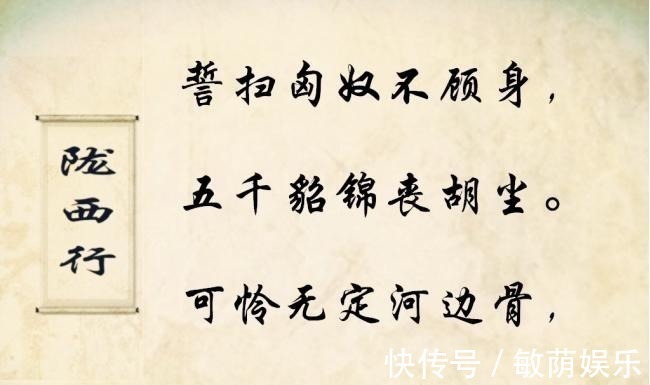 陇西行
誓扫匈奴不顾身，
五千貂锦丧胡尘。
可怜无定河边骨，
快传号 / 敏荫娱乐